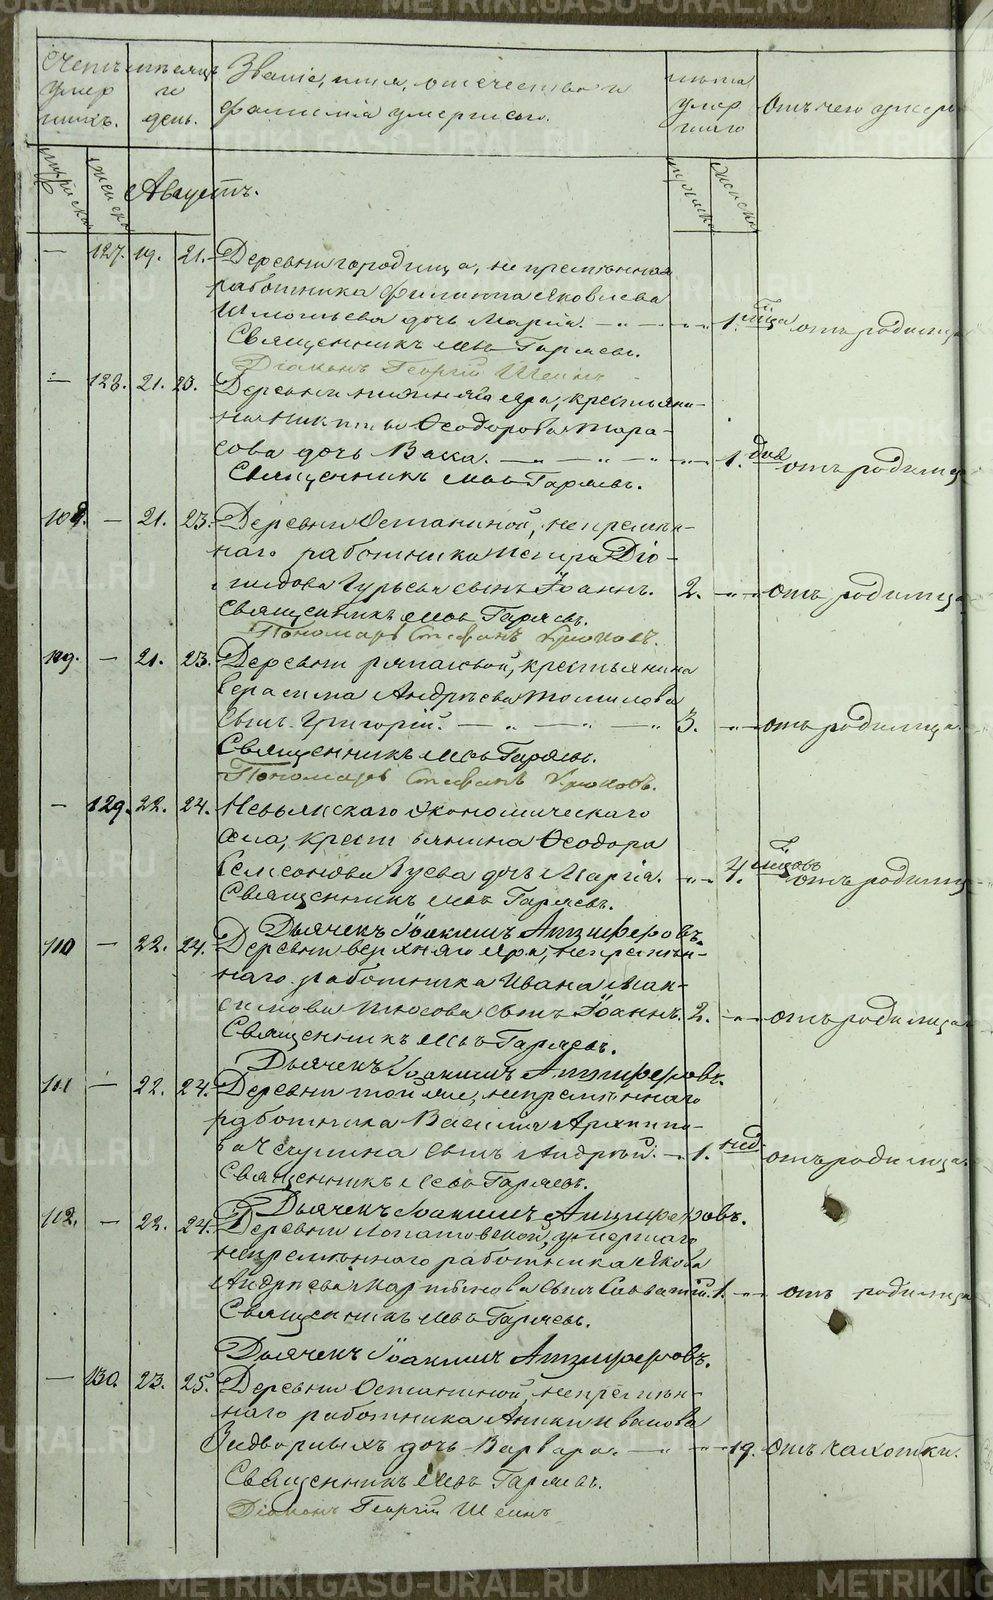 Счетъ умер шихъ.
мѣсяцъ и день.
Званіе, имя, отечество и фамилія умершаго.
лѣта умер шаго
Отъ чего умеръ
мужска женска
Августъ.
мужска женска
— 127. 19. 21. Деревни городища, непремѣннаго
работника Филиппа Яковлева
дочь Марія. — „ — „ — 1. отъ родимца
Священникъ Левъ Гаряевъ.
Діаконъ Георгій Шеинъ
— 128. 21. 23. Деревни нижняго яра, крестьяни-
на Никиты Ѳеодорова Тара-
сова дочь Васса. — „ — „ — 1. отъ родимца
Священникъ Левъ Гаряевъ.
108. — 21. 23. Деревни Останиной, непремѣн-
наго работника Петра Діо-
мидова Гурьева сынъ Іоаннъ. 2. — „ — отъ родимца
Священникъ Левъ Гаряевъ.
Пономарь Стефанъ Крюковъ.
109. — 21. 23. Деревни ряпасовой, крестьянина
Герасима Андрѣева Томилова
сынъ Григорій. — „ — „ — „ 3. „ отъ родимца.
Священникъ Левъ Гаряевъ.
Пономарь Стефанъ Крюковъ.
— 129. 22. 24. Невьянскаго Экономическаго
села, крестьянина Ѳеодора
Семенова Гусева дочь Марія. — „ — 4. отъ родимца
Священникъ Левъ Гаряевъ.
Дьячекъ Іоакимъ Анциферовъ.
110 — 22. 24. Деревни верхняго яра, непремѣн-
наго работника Ивана Мак-
симова сынъ Іоаннъ. 2. — „ — отъ родимца
Священникъ Левъ Гаряевъ.
Дьячекъ Іоакимъ Анциферовъ.
111 — 22. 24. Деревни непремѣннаго
работника Василія Архипо-
ва сынъ Андрей. — 1. нед. отъ родимца.
Священникъ Левъ Гаряевъ.
Дьячекъ Іоакимъ Анциферовъ.
112. — 22. 24. Деревни Лопатовской, умершаго
непремѣннаго работника Якова
Андреева Мартынова сынъ Савватій. 1. — „ — отъ родимца
Священникъ Левъ Гаряевъ.
Дьячекъ Іоакимъ Анциферовъ.
— 130. 23. 25. Деревни Останиной, непремѣн-
наго работника Аники Иванова
Задворныхъ дочь Варвара. — „ — „ — 19. отъ чахотки.
Священникъ Левъ Гаряевъ.
Діаконъ Георгій Шеинъ
METRIKI.GASO-URAL.RU